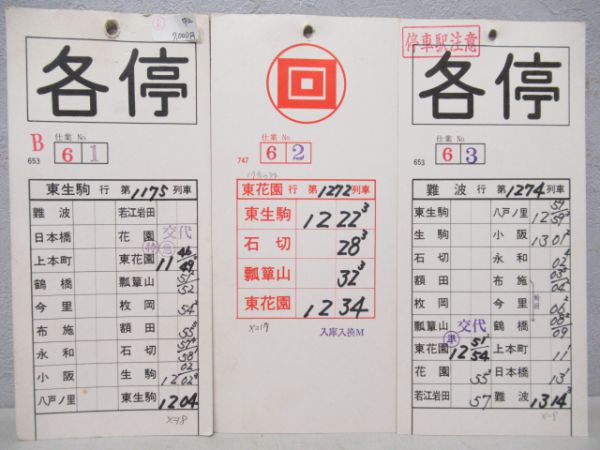 ㊕ 92
7,000円
各停
B
仕業 No.
653
6 1
東生駒 行 第1175列車
難波
日本橋
上本町
鶴橋
今里
布施
永和
小阪
八戸ノ里
若江岩田
花園 交代
東花園 11 46 49
瓢箪山 51 52
枚岡 54
額田 55
石切 57 58
生駒 12 02 02
東生駒 1204
X-18
回
仕業 No.
747
6 2
東花園 行 第1272列車
東生駒 12 22³
石切 28³
瓢箪山 32³
東花園 12 34
X=17
入庫入換M
停車駅注意
各停
仕業 No.
653
6 3
難波 行 第1274列車
東生駒
生駒
石切
額田
枚岡
瓢箪山 交代
東花園 準 12 51 54
花園 55
若江岩田 57
八戸ノ里 12 57 59
小阪 1301
永和 02
布施 03 04
今里 06
鶴橋 08 09
上本町 11
日本橋 13
難波 1314³